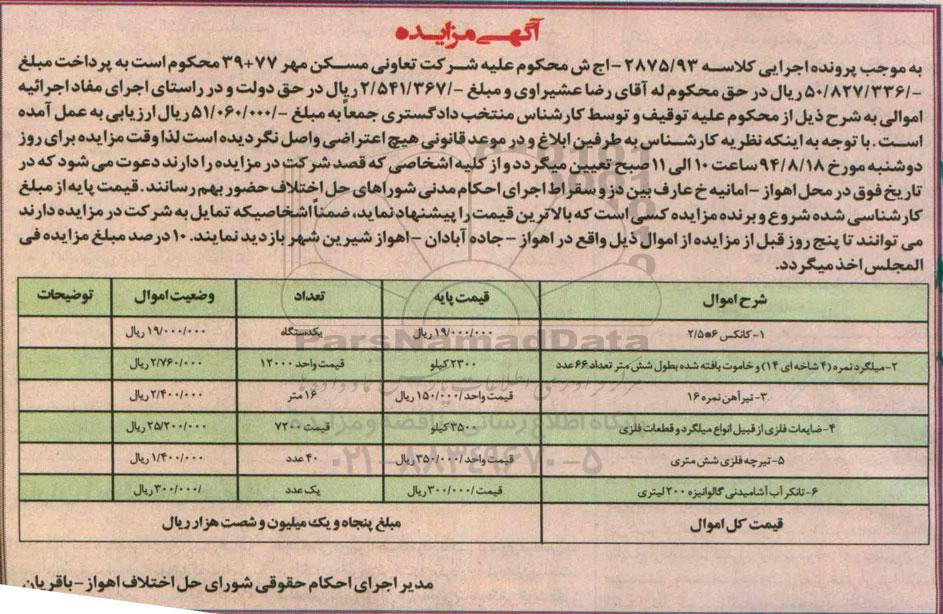 آگهی مزایده
به موجب پرونده اجرایی کلاسه ۲۸۷۵/۹۳ -اج ش محکوم علیه شرکت تعاونی مسکن مهر ۷۷+۳۹ محکوم است به پرداخت مبلغ
-/۵۰/۸۲۷/۳۳۶ ریال در حق محکوم له آقای رضا عشیراوی و مبلغ -/۲/۵۴۱/۳۶۷ ریال در حق دولت و در راستای اجرای مفاد اجرائیه
اموالی به شرح ذیل از محکوم علیه توقیف و توسط کارشناس منتخب دادگستری جمعاً به مبلغ -/۵۱/۰۶۰/۰۰۰ ریال ارزیابی به عمل آمده
است. با توجه به اینکه نظریه کارشناس به طرفین ابلاغ و در موعد قانونی هیچ اعتراضی واصل نگردیده است لذا وقت مزایده برای روز
دوشنبه مورخ ۹۴/۸/۱۸ ساعت ۱۰ الی ۱۱ صبح تعیین میگردد و از کلیه اشخاصی که قصد شرکت در مزایده را دارند دعوت می شود که در
تاریخ فوق در محل اهواز -امانیه خ عارف بین دز و سقراط اجرای احکام مدنی شوراهای حل اختلاف حضور بهم رسانند. قیمت پایه از مبلغ
کارشناسی شده شروع و برنده مزایده کسی است که بالاترین قیمت را پیشنهاد نماید، ضمناً اشخاصیکه تمایل به شرکت در مزایده دارند
می توانند تا پنج روز قبل از مزایده از اموال ذیل واقع در اهواز - جاده آبادان -اهواز شیرین شهر بازدید نمایند. ۱۰ درصد مبلغ مزایده فی
المجلس اخذ میگردد.
شرح اموال قیمت پایه تعداد وضعیت اموال توضیحات
۱-کانکس ۶*۲/۵ ۱۹/۰۰۰/۰۰۰ ریال یکدستگاه ۱۹/۰۰۰/۰۰۰ ریال
۲-میلگرد نمره (۴ شاخه ای ۱۴) و خاموت بافته شده بطول شش متر تعداد ۶۶ عدد ۲۳۰۰ کیلو قیمت واحد ۱۲۰۰۰ ۲/۷۶۰/۰۰۰ ریال
۳-تیرآهن نمره ۱۶ قیمت واحد /۱۵۰/۰۰۰ ریال ۱۶ متر ۲/۴۰۰/۰۰۰ ریال
۴-ضایعات فلزی از قبیل انواع میلگرد و قطعات فلزی ۳۵۰۰ کیلو قیمت ۷۲۰۰ ۲۵/۲۰۰/۰۰۰ ریال
۵-تیرچه فلزی شش متری قیمت واحد /۳۵۰/۰۰۰ ریال ۴۰ عدد ۱/۴۰۰/۰۰۰ ریال
۶-تانکر آب آشامیدنی گالوانیزه ۲۰۰ لیتری قیمت /۳۰۰/۰۰۰ ریال یک عدد /۳۰۰/۰۰۰ ریال
قیمت کل اموال مبلغ پنجاه و یک میلیون و شصت هزار ریال
مدیر اجرای احکام حقوقی شورای حل اختلاف اهواز -باقریان
ParsNamadData
پایگاه اطلاع رسانی مناقصه و مزایده
۰۲۱-۸۸۳۴۹۶۷۰-۵